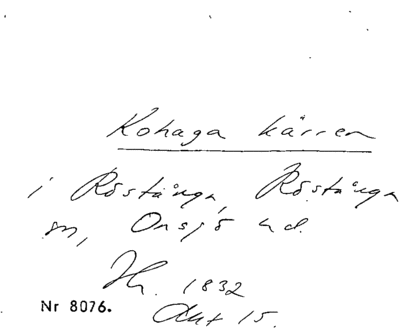 Kohaga kärren
i Röstånga, Röstånga
sn, Onsjö hd.
Hr. 1832
Akt 15.
Nr 8076.